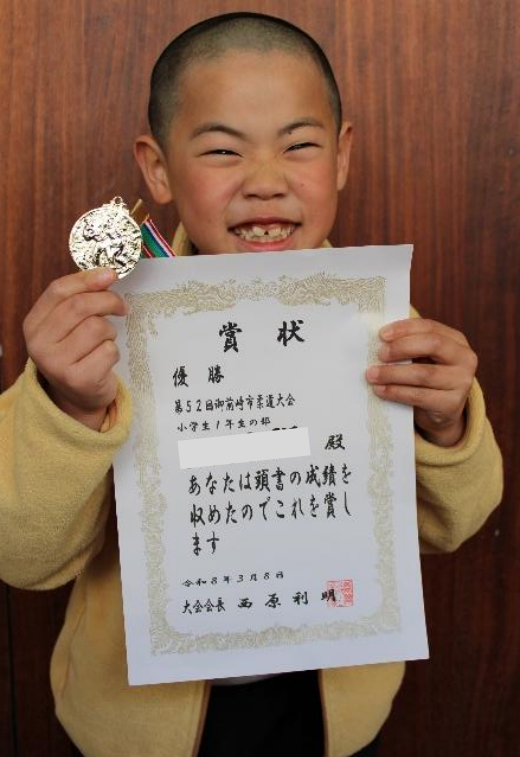 賞状
優勝
第52回御前崎市柔道大会
小学生1年生の部
殿
あなたは頭書の成績を
収めたのでこれを賞し
ます
令和8年3月8日
大会会長 西原利明